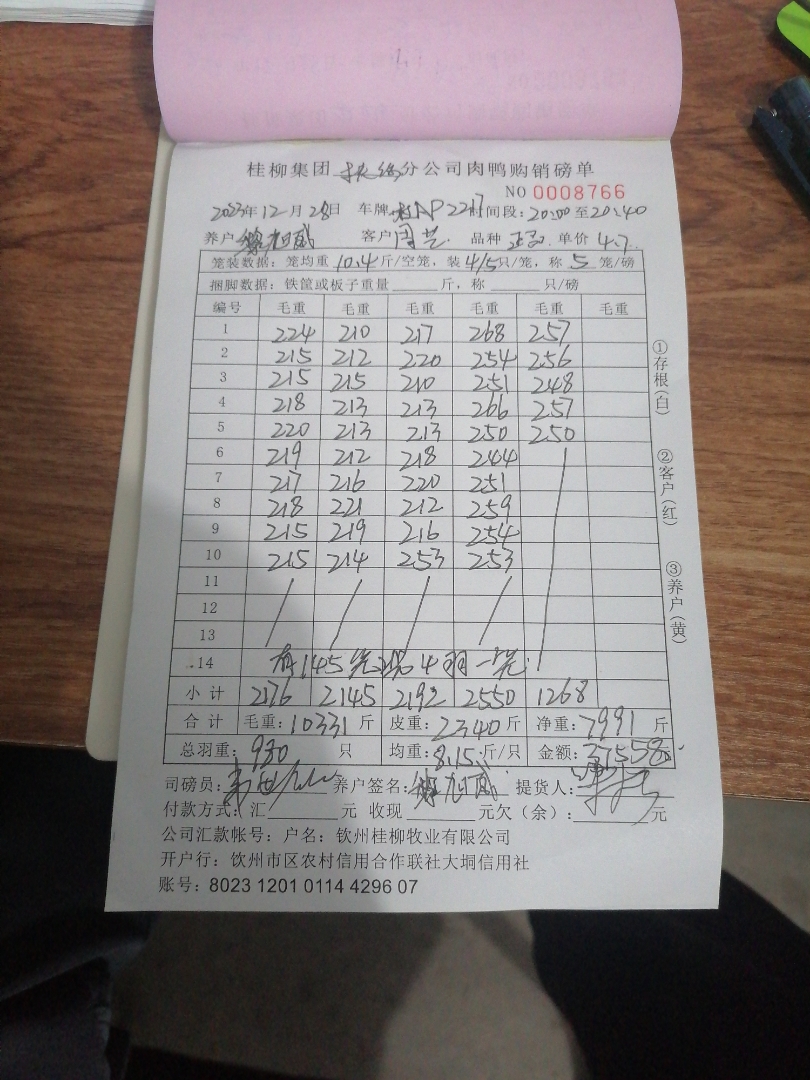 桂柳集团扶绥分公司肉鸭购销磅单
NO 0008766
2023年12月28日 车牌 AP2217 时间段：20:00至20:40
养户 旭威 客户 周艺 品种 单价 4.7
笼装数据：笼均重 10.4 斤/空笼，装 4/5 只/笼，称 5 笼/磅
捆脚数据：铁筐或板子重量 斤，称 只/磅
编号 毛重 毛重 毛重 毛重 毛重 毛重
1 224 210 217 268 257
2 215 212 220 254 256
3 215 215 210 251 248
4 218 213 213 266 257
5 220 213 213 250 250
6 219 212 218 244
7 217 216 220 251
8 218 221 212 259
9 215 219 216 254
10 215 214 253 253
11
12
13
14 有145笼 4羽一笼
小计 2176 2145 2192 2550 1268
合计 毛重：10331斤 皮重：2340斤 净重：7991斤
总羽重：980只 均重：8.15斤/只 金额：37558元
司磅员： 养户签名： 旭威 提货人：
付款方式：汇 元 收现 元欠（余）： 元
公司汇款帐号：户名：钦州桂柳牧业有限公司
开户行：钦州市区农村信用合作联社大垌信用社
账号：8023 1201 0114 4296 07
①存根（白）
②客户（红）
③养户（黄）